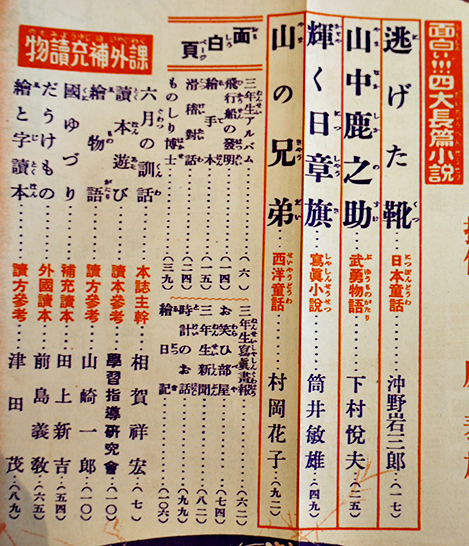 面白い!!四大長篇小説
逃げた靴……日本童話……沖野岩三郎(一七)
山中鹿之助……武勇物語……下村悦夫(二五)
輝く日章旗……寫眞小説……筒井敏雄(四九)
山の兄弟……西洋童話……村岡花子(九二)
面白頁
三年生アルバム……(六)
飛行船の發明……(一四)
繪手本……(一五)
滑稽對話……(三一)
ものしり博士……(三九)
三年生寫眞畫報……(六二)
お笑ひ部屋……(七四)
三年生新聞……(八二)
時計のお話……(九九)
繪日記……(一〇六)
課外補充讀物
六月の訓話……本誌主幹……相賀祥宏(七)
讀本遊び……讀本參考……學習指導研究會(一〇)
繪物語……讀方參考……山崎一郎(一〇)
國ゆづり……補充讀本……田上新吉(五四)
だうけもの……外國讀本……前島義敎(六五)
繪と字讀本……讀方參考……津田茂(八九)